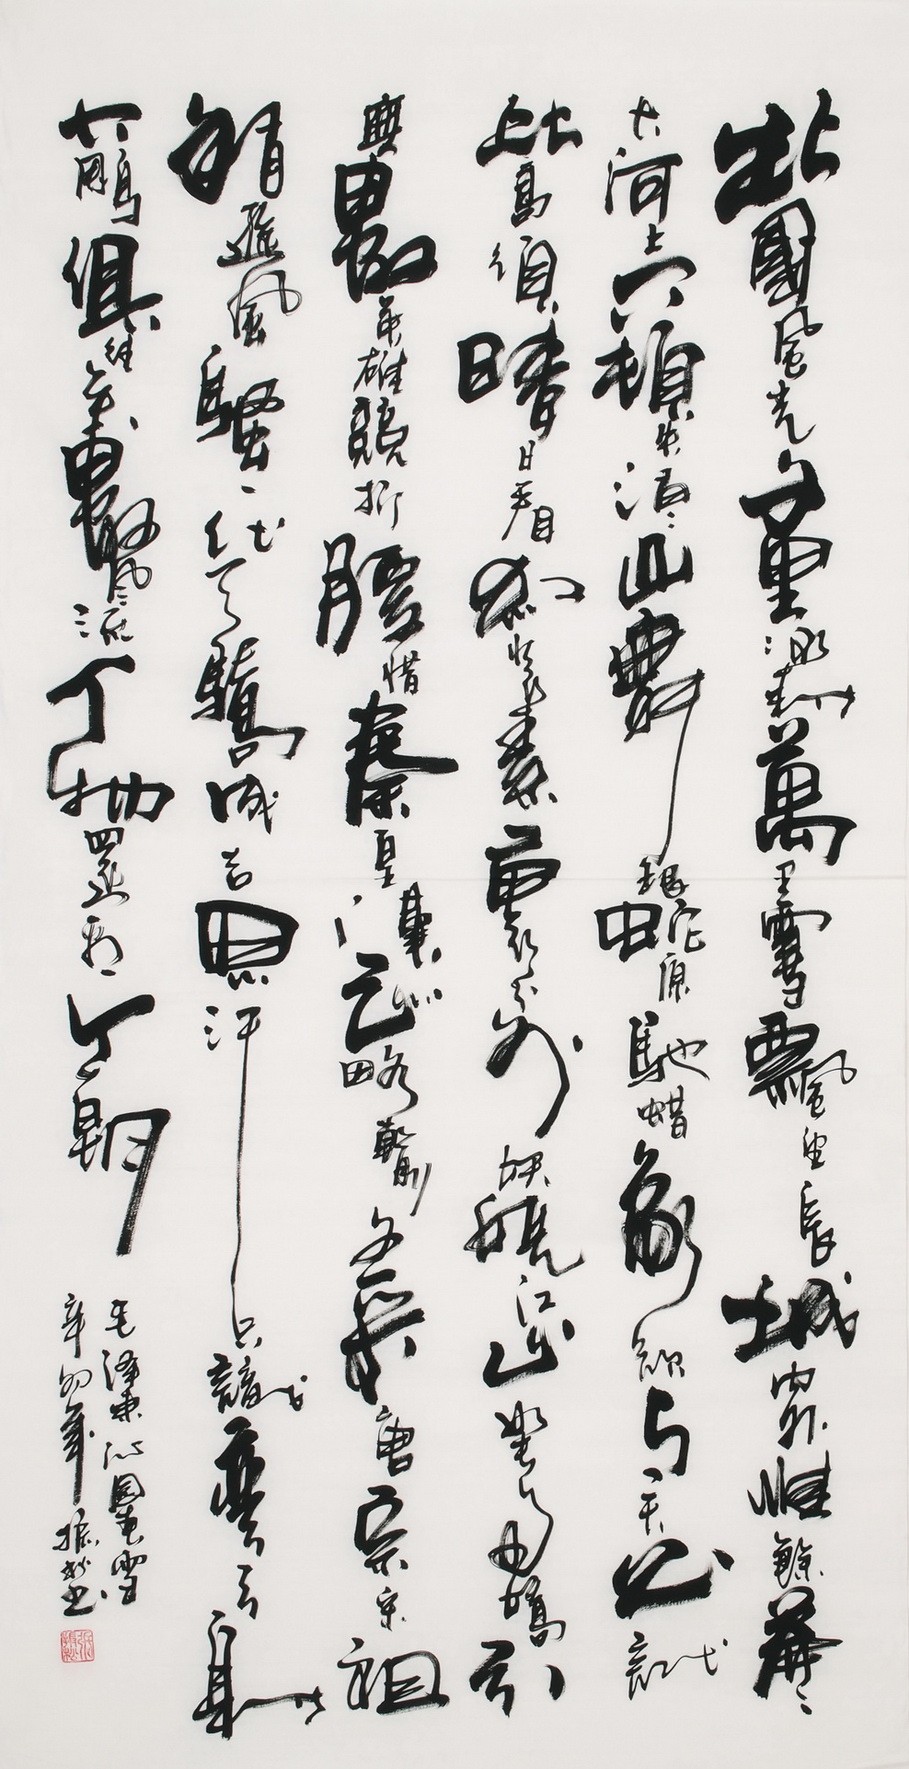 北國風光千里冰封萬里雪飄望長城內外惟餘莽莽
大河上下頓失滔滔山舞銀蛇原馳蠟象欲與天公試
比高須晴日看紅裝素裹分外妖嬈江山如此多嬌引
無數英雄競折腰惜秦皇漢武略輸文采唐宗宋祖
稍遜風騷一代天驕成吉思汗只識彎弓射
大鵰俱往矣數風流人物還看今朝
毛澤東沁園春雪
辛卯年振秋書